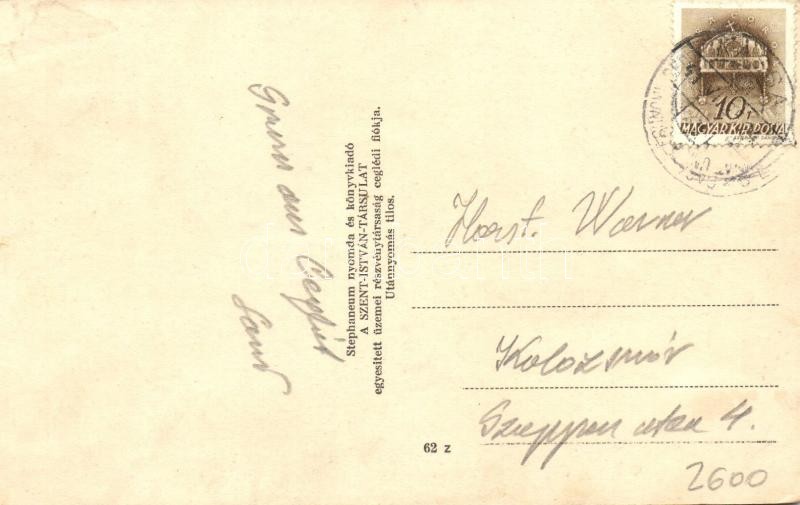 10 f
MAGYAR KIR. POSTA
Gruss aus Cegléd
Stephaneum nyomda és könyvkiadó
A SZENT-ISTVÁN-TÁRSULAT
egyesített üzemei részvénytársaság ceglédi fiókja.
Utánnyomás tilos.
Horst Warner
Kolozsvár
utca 4.
62 z
2600